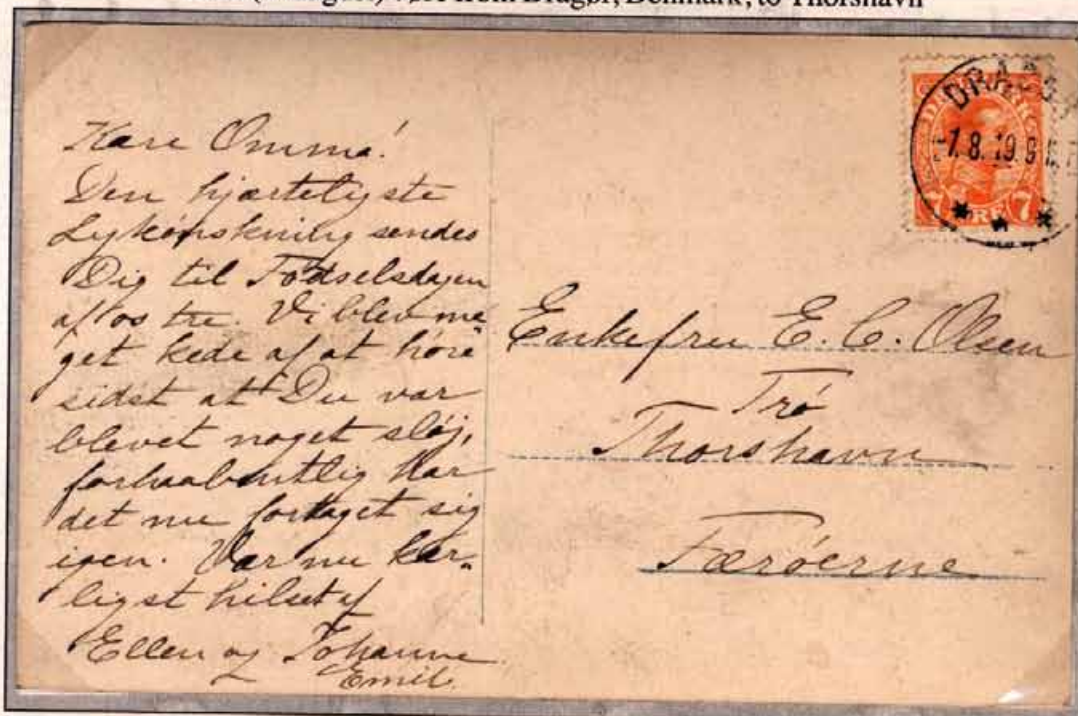 7 øre from Dragør, Denmark, to Thorshavn
DANMARK
DRAGØR
-7.8.19. 9
7 ØRE 7
Kære Omma!
Den hjærteligste
Lykønskning sendes
Dig til Fødselsdagen
af os tre. Vi blev me
get kede af at høre
sidst at Du var
blevet noget sløj,
forhaabentlig har
det nu fortaget sig
igen. Vær nu kær-
ligst hilset af
Ellen og Johanne
Emil.
Enkefru E. C. Olsen
Trø
Thorshavn
Færøerne